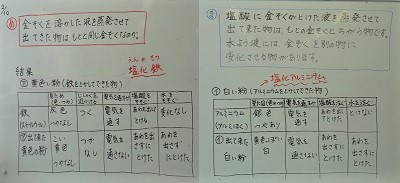 2/10
め 金ぞくを溶かした液を蒸発させて
出てきた物はもとと同じ金ぞくなのか。
結果
えんか てつ
塩化鉄
黄色い粉(鉄をとかしてできた物)
見ため
じしゃくを近づける
電気を通す
塩酸を注ぐ
水を
鉄
(スチールウール)
灰色
つやなし
つく
電気を通す
あわを出してとけた
変化なし
出て来た黄色の粉
こい黄色
つやなし
つかなし
電気を通さない
あわを出さずにとけた
あわを出さずにとけた
ま 塩酸に金ぞくがとけた液を蒸発させて
出て来た物は、もとの金ぞくとちがう物です。
水よう液には、金ぞくを別の物に
変化させる物があります。
塩化アルミニウム
白い粉(アルミニウムをとかしてできた物)
見た目
電気を通す
塩酸に注ぐ
水に注ぐ
アルミニウム
(アルミはく)
銀色
つやあり
電気を通す
あわを出してとけた
とけない
出て来た白い粉
黄色っぽい白
電気を通さない
あわを出さずにとけた
あわを出さずにとけた